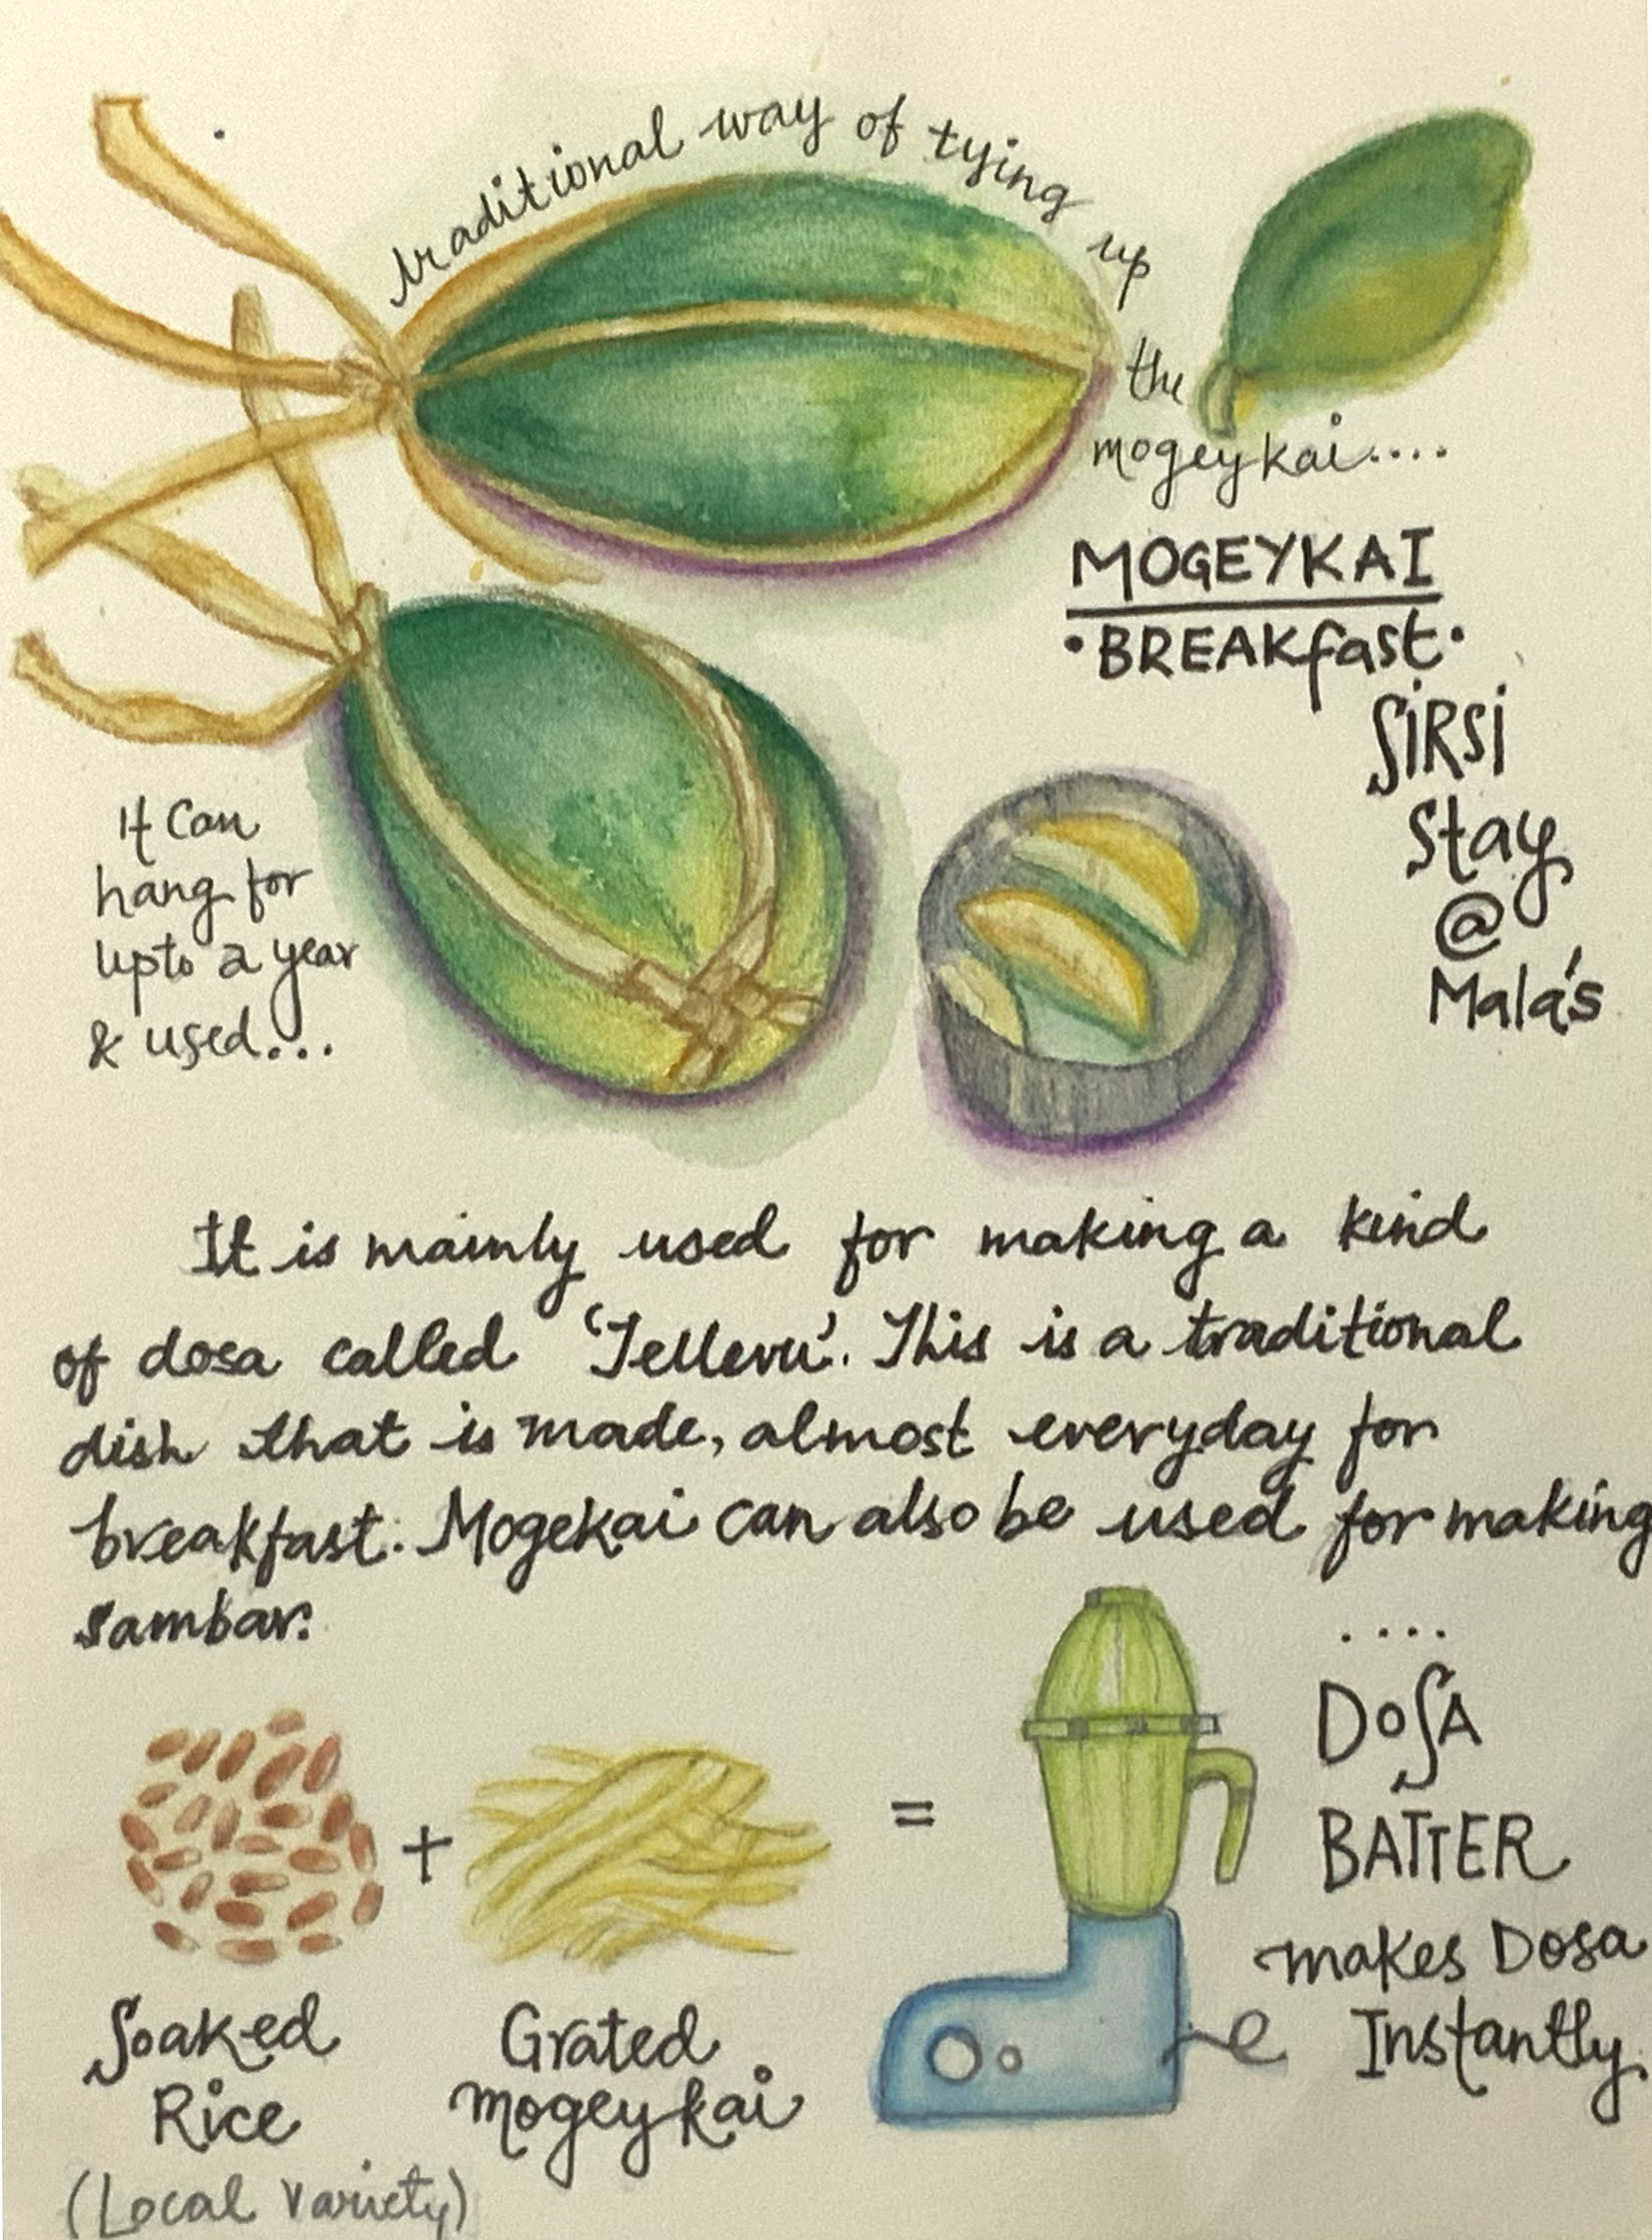 traditional way of tying up
the
mogeykai....
MOGEYKAI
·BREAKfast·
SIRSI
Stay
@
Mala's
It can
hang for
upto a year
& used...
It is mainly used for making a kind
of dosa called 'Tellevu'. This is a traditional
dish that is made, almost everyday for
breakfast. Mogekai can also be used for making
sambar.
....
DOSA
BATTER
makes Dosa
Instantly
+
=
Soaked
Rice
(Local variety)
Grated
mogeykai